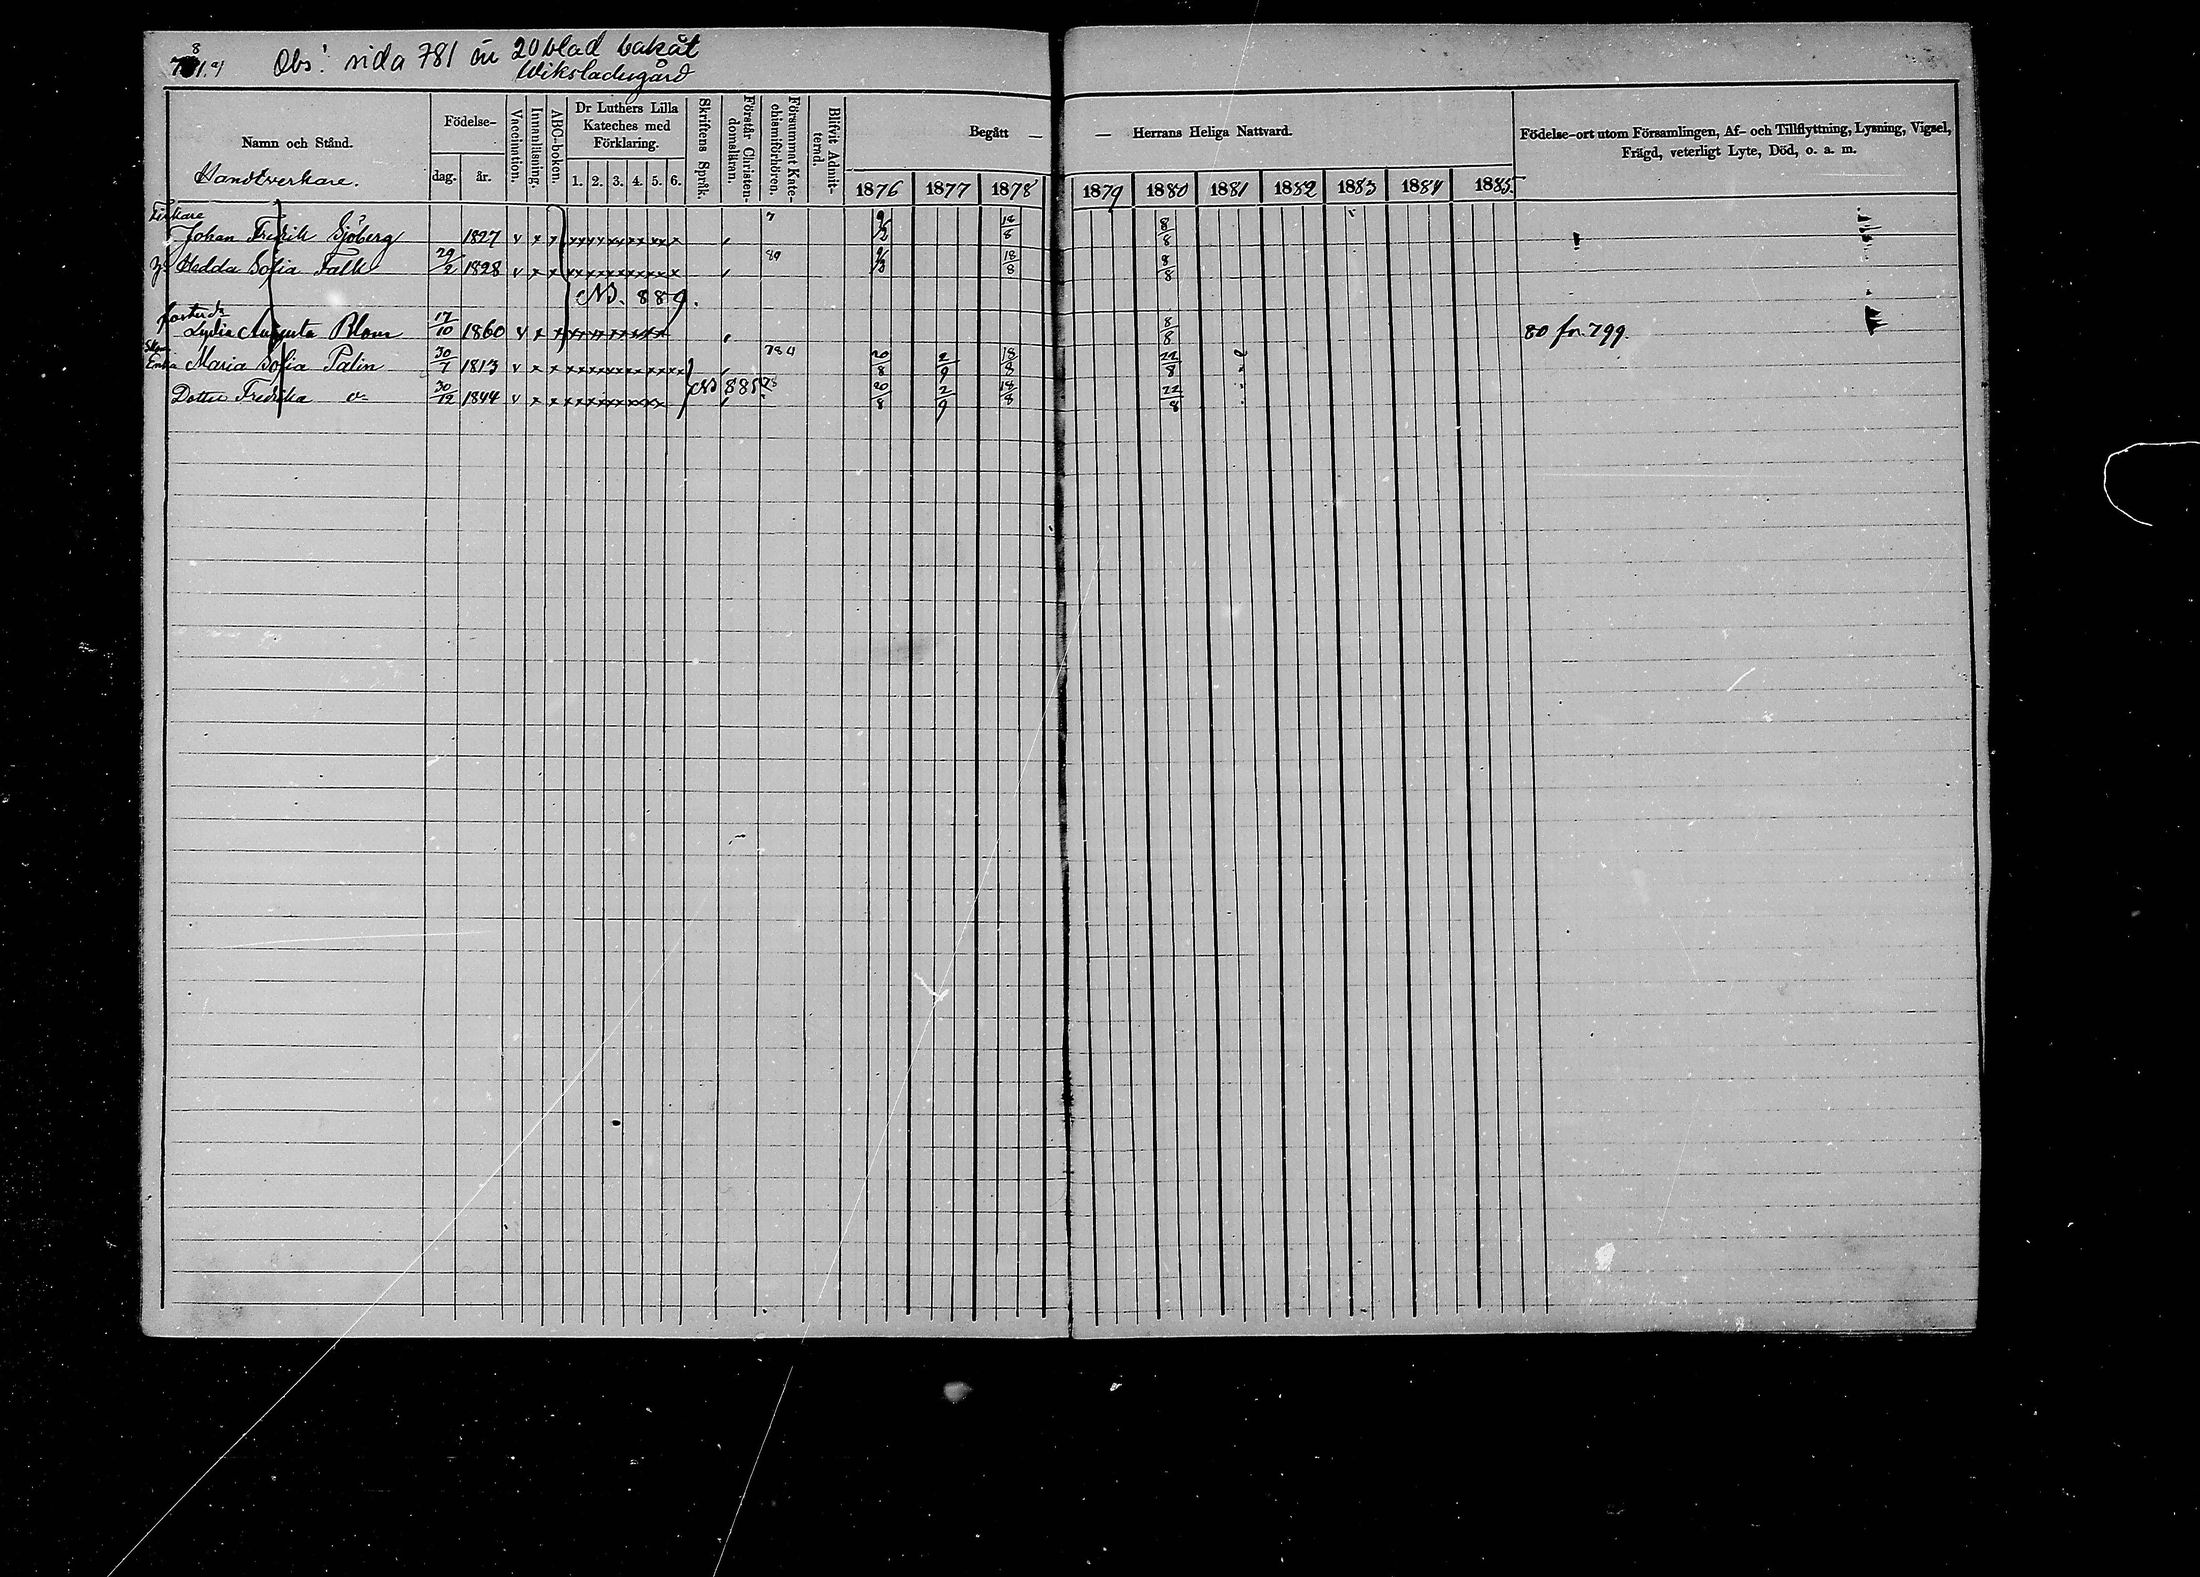 Obs! sida 781 är 20 blad bakåt
Wiksladugård
Namn och Stånd.
Handtverkare.
Födelse-
dag. år.
Vaccination.
Innanläsning.
ABC-boken.
Dr Luthers Lilla
Kateches med
Förklaring.
1. 2. 3. 4. 5. 6.
Skriftens Språk.
Förstår Christen-
domsläran.
Försummat Kate-
chismiförhören.
Blifvit Admit-
terad.
Begått —
1876 1877 1878
— Herrans Heliga Nattvard.
1879 1880 1881 1882 1883 1884 1885.
Födelse-ort utom Församlingen, Af- och Tillflyttning, Lysning, Vigsel,
Frägd, veterligt Lyte, Död, o. a. m.
Johan Fredrik Sjöberg 1827 v 18/8 8/8
Hedda Sofia Falk 29/2 1828 v 89 18/8 8/8
N. 889.
Lydia Augusta Blom 17/10 1860 v 8/8 80 fr. 799.
Enka Maria Sofia Palin 30/7 1813 v 20/8 2/9 18/8 22/8
Dotter Fredrika 30/12 1844 v N 885 20/8 2/9 18/8 22/8